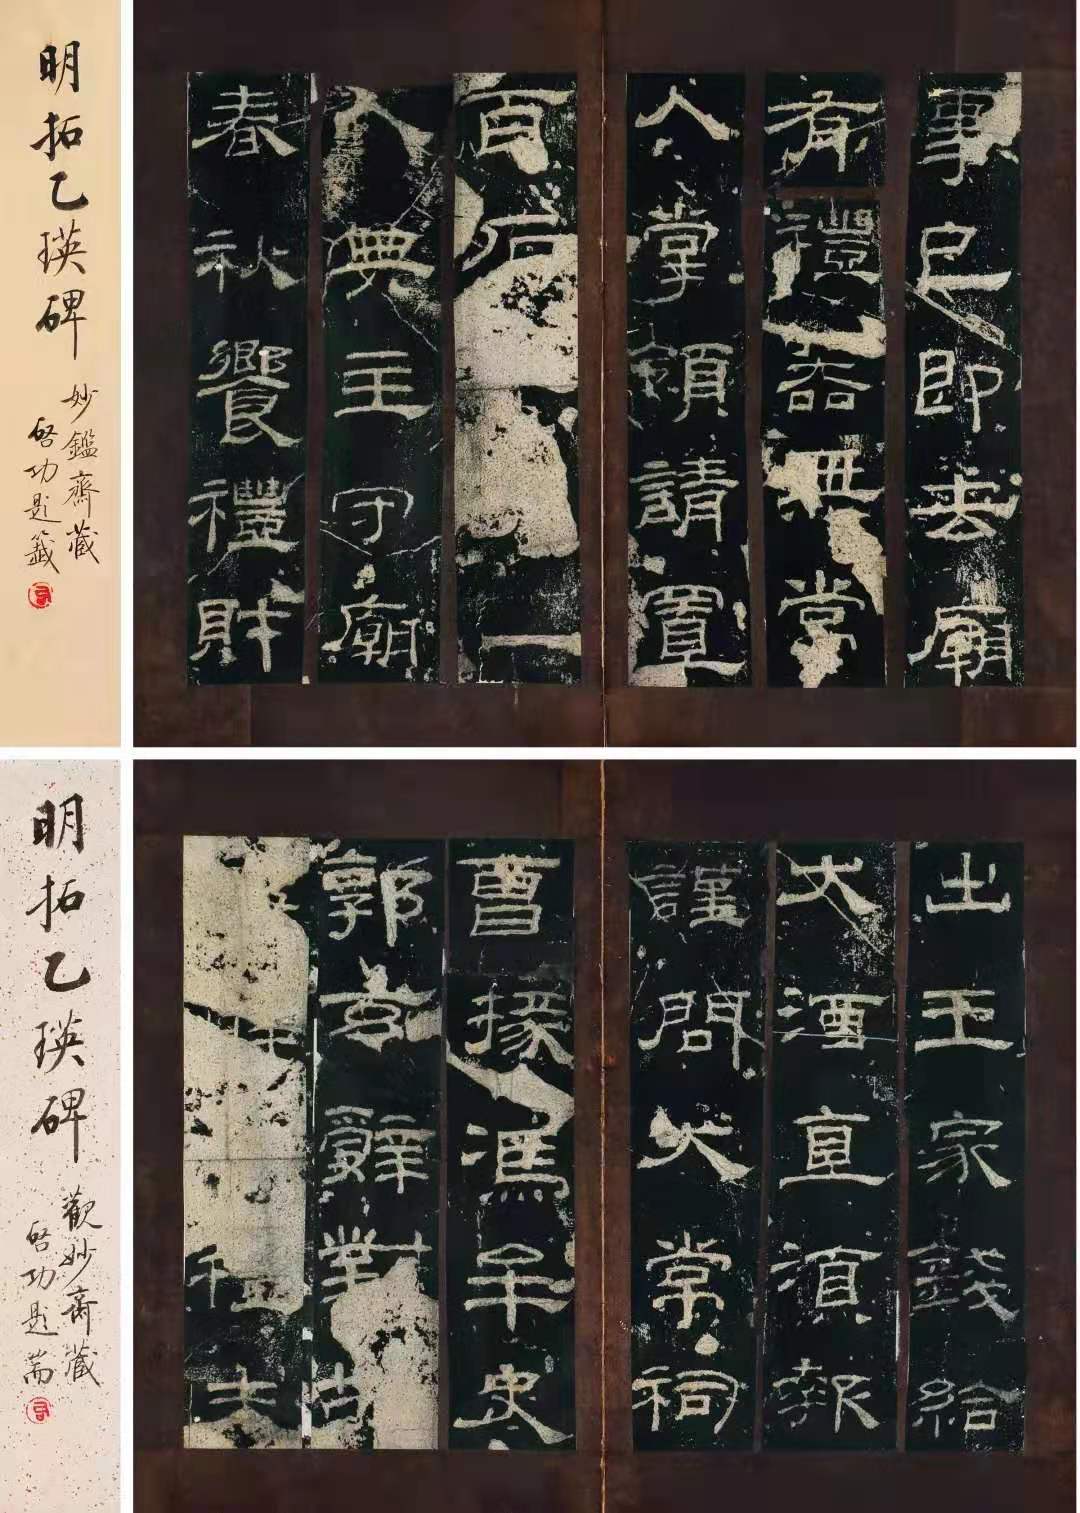 明拓乙瑛碑
妙鑑齋藏
啓功題籤
事已即去廟
有禮器無常
人掌領請置
百石一
人典主守廟
春秋饗禮財
明拓乙瑛碑
觀妙齋藏
啓功題耑
出王家錢給
大酒直須報
謹問大常祠
曹掾馮牟史
郭玄辭對故